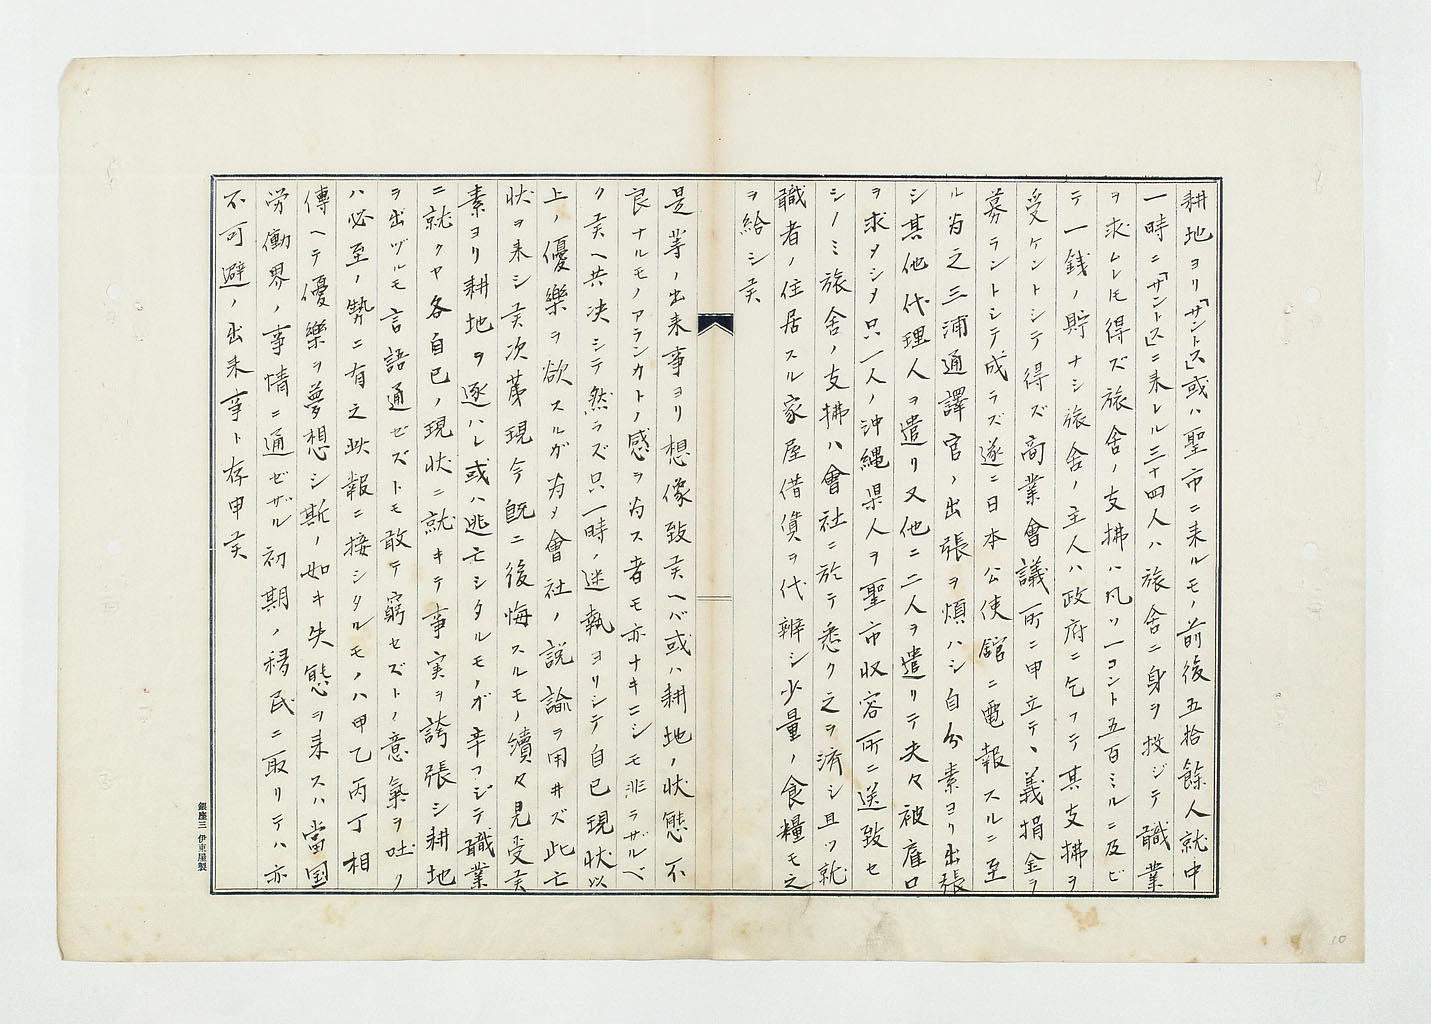 耕地ヨリ「サントス」或ハ聖市ニ来ルモノ前後五拾餘人就中
一時ニ「サントス」ニ来レル三十四人ハ旅舍ニ身ヲ投ジテ職業
ヲ求ムレモ得ズ旅舍ノ支拂ハ凡ソ一コント五百ミルニ及ビ
テ一錢ノ貯ナシ旅舍ノ主人ハ政府ニ乞フテ其支拂ヲ
受ケントシテ得ズ商業會議所ニ申立テ、義捐金ヲ
募ラントシテ成ラズ遂ニ日本公使館ニ電報スルニ至
ル为之三浦通譯官ノ出張ヲ煩ハシ自分素ヨリ出張
シ其他代理人ヲ遣リ又他ニ二人ヲ遣リテ夫々被雇口
ヲ求メシメ只一人ノ沖縄県人ヲ聖市収容所ニ送致セ
シノミ旅舍ノ支拂ハ會社ニ於テ悉ク之ヲ済シ且ツ就
職者ノ住居スル家屋借賃ヲ代辨シ少量ノ食糧モ之
ヲ給シ候
是等ノ出来事ヨリ想像致候ヘバ或ハ耕地ノ状態不
良ナルモノアランカトノ感ヲ为ス者モ亦ナキニシモ非ラザルベ
ク候ヘ共决シテ然ラズ只一時ノ迷執ヨリシテ自己現状以
上ノ優樂ヲ欲スルガ为メ會社ノ説諭ヲ用ヰズ此亡
状ヲ来シ候次第現今既ニ後悔スルモノ續々見受候
素ヨリ耕地ヲ逐ハレ或ハ逃亡シタルモノガ辛フジテ職業
ニ就クヤ各自己ノ現状ニ就キテ事実ヲ誇張シ耕地
ヲ出ヅルモ言語通ゼズトモ敢テ窮セズトノ意氣ヲ吐ク
ハ必至ノ勢ニ有之此報ニ接シタルモノハ甲乙丙丁相
傳ヘテ優樂ヲ夢想シ斯ノ如キ失態ヲ来スハ當国
労働界ノ事情ニ通ゼザル初期ノ移民ニ取リテハ亦
不可避ノ出来事ト存申候
銀座三 伊東屋製
10